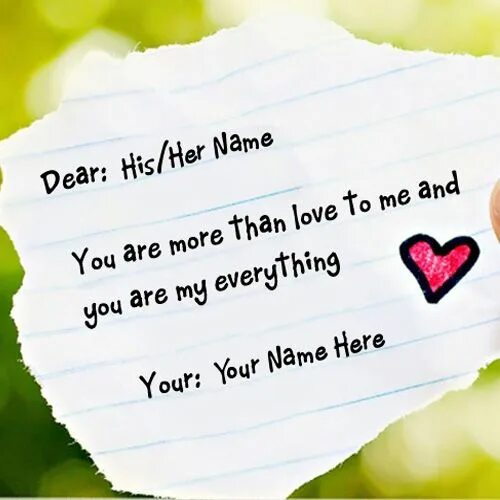 Dear: His/Her Name
You are more than love to me and
you are my everything
Your: Your Name Here